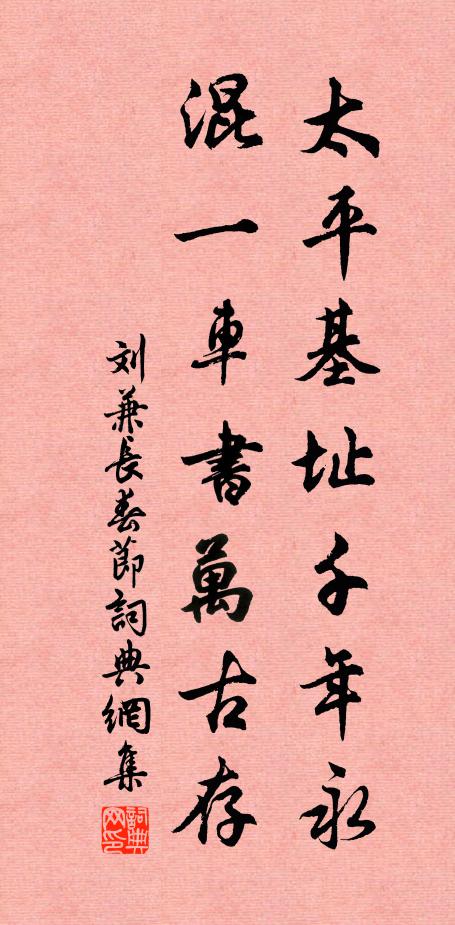 太平基址千年永
混一車書萬古存
刘兼長春節詞典網集
詞典
网印